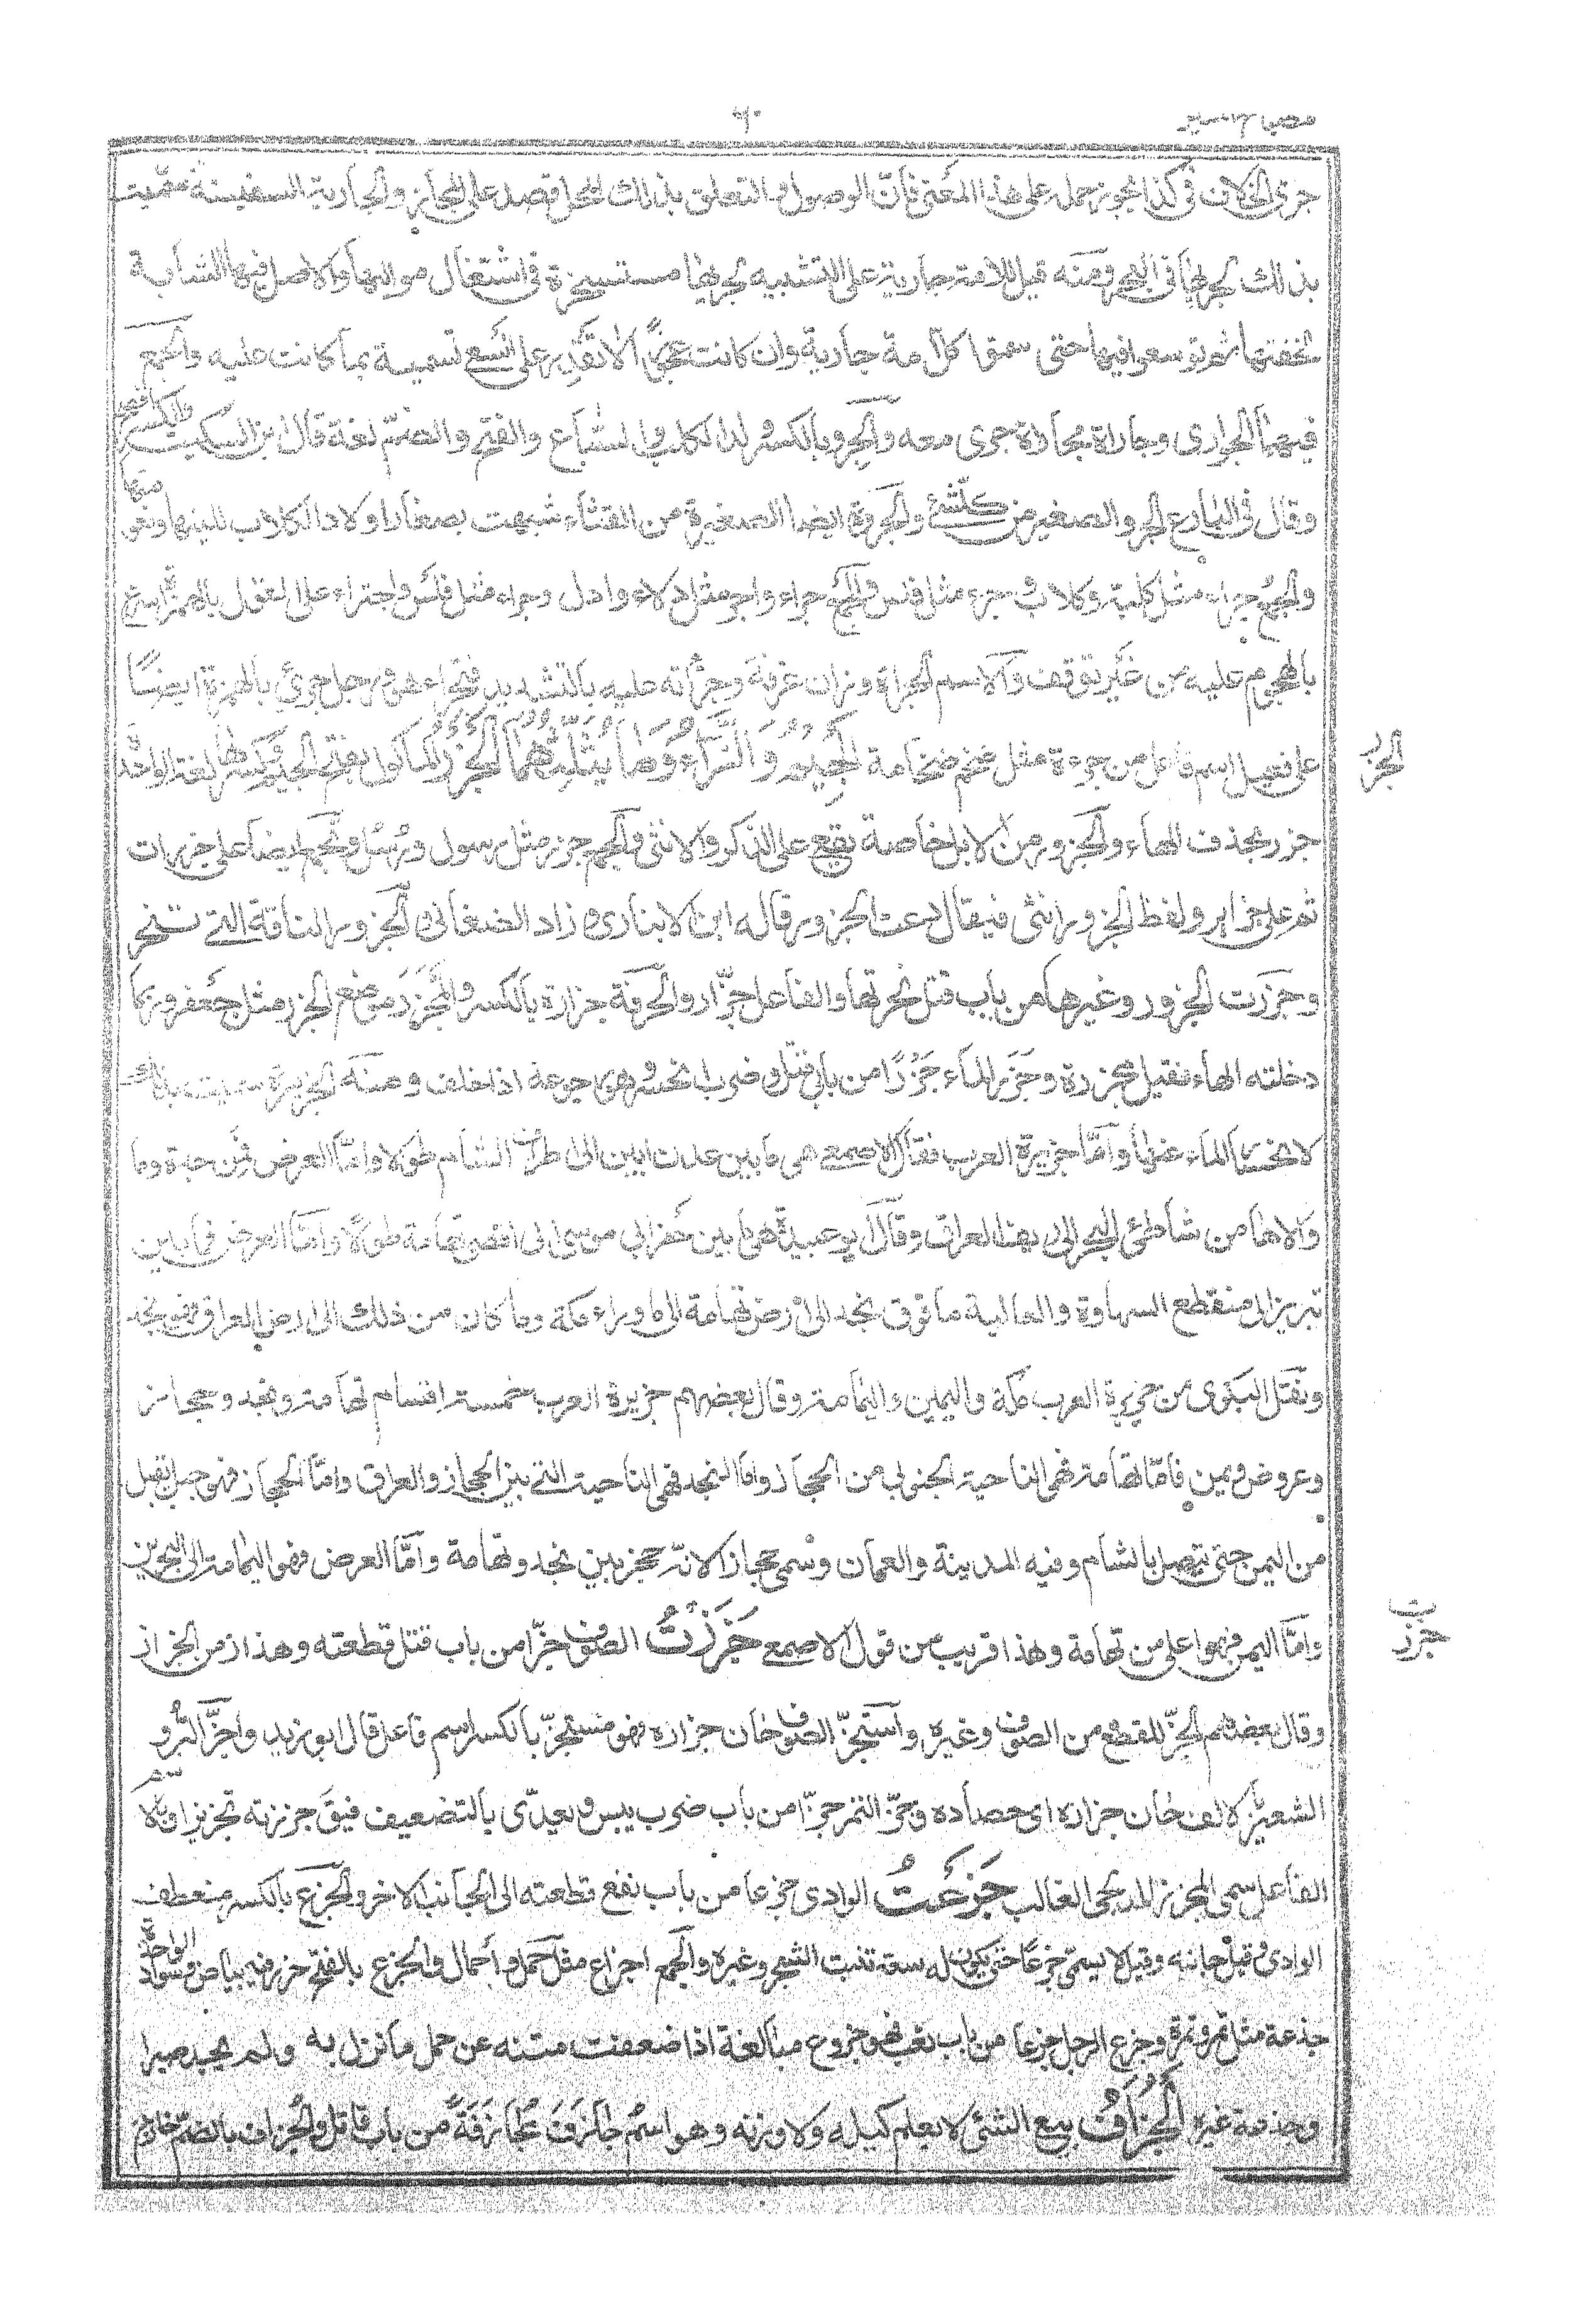 مصباح منير
٦٠
جرى الخلاف في كذا يجوز حمله على هذا المعنى فأن الوصول والتعلق بذلك المحل قصد على المجاز والجارية السفينة سميت
بذلك لجريها في البحر ومنه قيل للامة جارية على التشبيه لجريها مستسخرة في اشتغال مواليها والاصل فيها الشابة
لخفتها ثم توسعوا فيها حتى سموا كل امة جارية وان كانت عجوزا لا تقدر على السعي تسمية بما كانت عليه والجمع
فيهما الجواري وجاراة مجاراة جرى معه والجرو بالكسر ولد الكلب والسباع والفتح والضم لغة قال ابن السكيت والكسر افصح
وقال في البارع الجرو الصغير من كل شئ والجروة ايضا الصغيرة من القثاء شبهت بصغار اولاد الكلاب للينها ونعومتها
والجمع جراء مثل كلبة وكلاب و جرء مثل فلس والجمع جراء واجر مثل دلاء وادل وجراء مثل فلس واجتراء على القول بالهمزة اسرع
بالهجوم عليه من غير توقف والاسم الجراة وزان غرفة وجرأته عليه بالتشديد فتجراء هو ورجل جرئ بالهمزة ايضا
على فعيل اسم فاعل من جرءة مثل ضخم ضخامة الجيم والزاء وما يثلثهما الجزر المأكول بفتح الجيم وكسرها لغة الواحدة
الجزر
جزر بحذف الهاء والجزور من الابل خاصة يقع على الذكر والانثى والجمع جزر مثل رسول ورسل ويجمع ايضا على جزرات
ثم على جزاير ولفظ الجزور انثى فيقال رعت الجزور قاله ابن الانباري وزاد الصغاني والجزور الناقة التي تنحر
وجزرت الجزور وغيرها من باب قتل نحرتها والفاعل جزار والحرفة جزارة بالكسر والمجزر موضع الجزر مثل جعفر وربما
دخلته الهاء فقيل مجزرة وجزر الماء جزرا من بابي قتل وضرب انحسر وهو رجوعه اذا خلف ومنه الجزيرة سميت بذلك
لانحسار الماء عنها وامّا جزيرة العرب فقال الاصمعي هي ما بين عدن ابين الى اطراف الشام طولا وامّا العرض فمن جدة وما
والاها من شاطئ البحر الى ريف العراق وقال ابو عبيدة هي ما بين حفر ابي موسى الى اقصى تهامة طولا وامّا العرض فما بين
تبرين الى منقطع السماوة والعالية ما فوق نجد الى ارض تهامة الى ما وراء مكة وما كان من ذلك الى ارض العراق فهو نجد
ونقل البكري من جزيرة العرب مكة والمدينة واليمن واليمامة وقال بعضهم جزيرة العرب خمسة اقسام تهامة ونجد وحجاز
وعروض ويمن فامّا تهامة فهي الناحية الجنوبي من الحجاز واما النجد فهي الناحية التي بين الحجاز والعراق وامّا الحجاز فهو جبل تقبل
من اليمن حتى يتصل بالشام وفيه المدينة والعمان وسمي حجازا لانه حجز بين نجد وتهامة وامّا العرض فهو اليمامة الى البحرين
وامّا اليمن فهوا على من تهامة وهذا قريب من قول الاصمعي جززت الصوف جزا من باب قتل قطعته وهذا زمن الجزاز
جززت
وقال بعضهم الجز القطع من الصوف وغيره واستجز الصوف حان جزازه فهو مستجز بالكسر اسم فاعل قال ابو زيد واجز البر و
الشعير بالالف حان جزازه اي حصاده وجز التمر جزا من باب ضرب يبس ويعدّى بالتضعيف فيق جززته تجزيزا وباسم
الفاعل سمي المجزز المدلجي الغالب جزعت الوادي جزعا من باب نفع قطعته الى الجانب الاخر والجزع بالكسر منعطف
الوادي وقيل جانبه وقيل لا يسمى جزعا حتى يكون له سعة تنبت الشجر وغيره والجمع اجزاع مثل حمل واحمال والجزع بالفتح خرز فيه بياض وسواد الواحدة
جذعة مثل تمر وتمرة وجزع الرجل جزعا من باب تعب فهو جزوع مبالغة اذا ضعفت متنه عن حمل ما نزل به ولم يجد صبرا
وجذعة غيره الجزاف بيع الشئ لا يعلم كيله ولا وزنه وهو اسم جازف مجازفة من باب قاتل والجزاف بالضم خارج